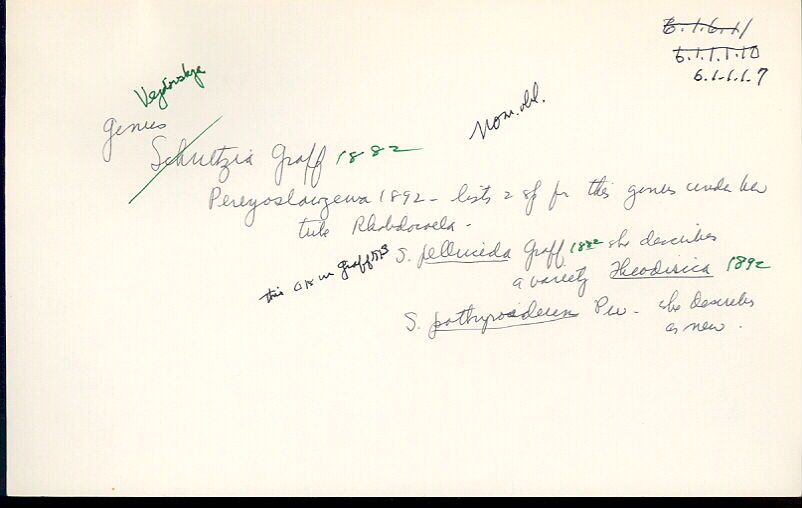 6.1.6.11
6.1.1.1.10
6.1.1.1.7
Vejdovskya
genus
Schultzia Graff 1882
Nom. obl.
Pereyoslawzewa 1892 - lists 2 sp for this genus under her
tribe Rhabdocoela -
S. pellucida Graff 1882 she describes
a variety Theodisica 1892
this OK in Graff 1913
S. Per - she describes
as new.